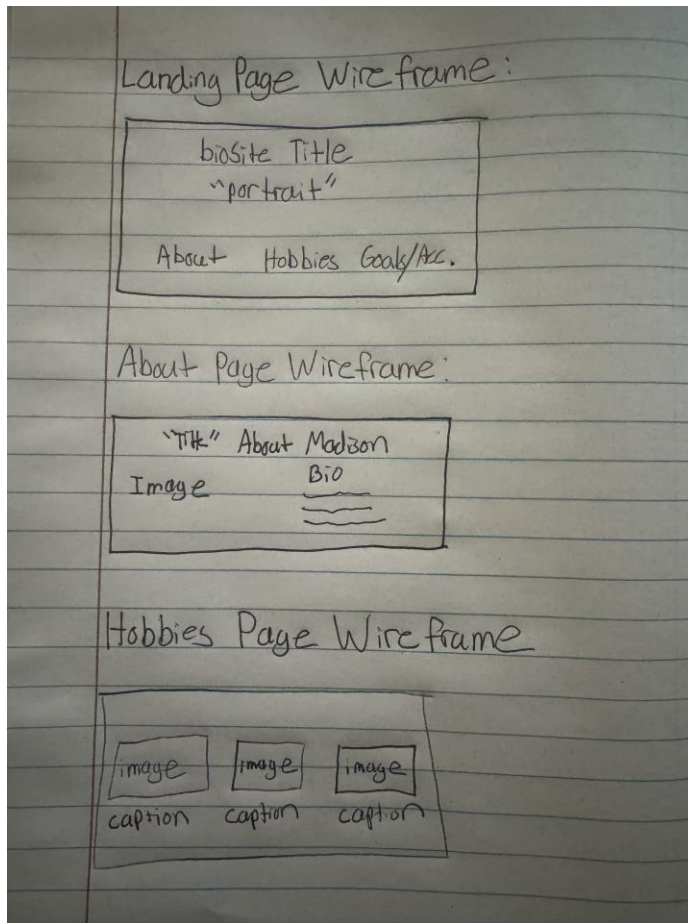 Landing Page Wireframe:
bioSite Title
"portrait"
About Hobbies Goals/Acc.
About Page Wireframe:
"Title" About Madison
Image Bio
Hobbies Page Wireframe
image image image
caption caption caption